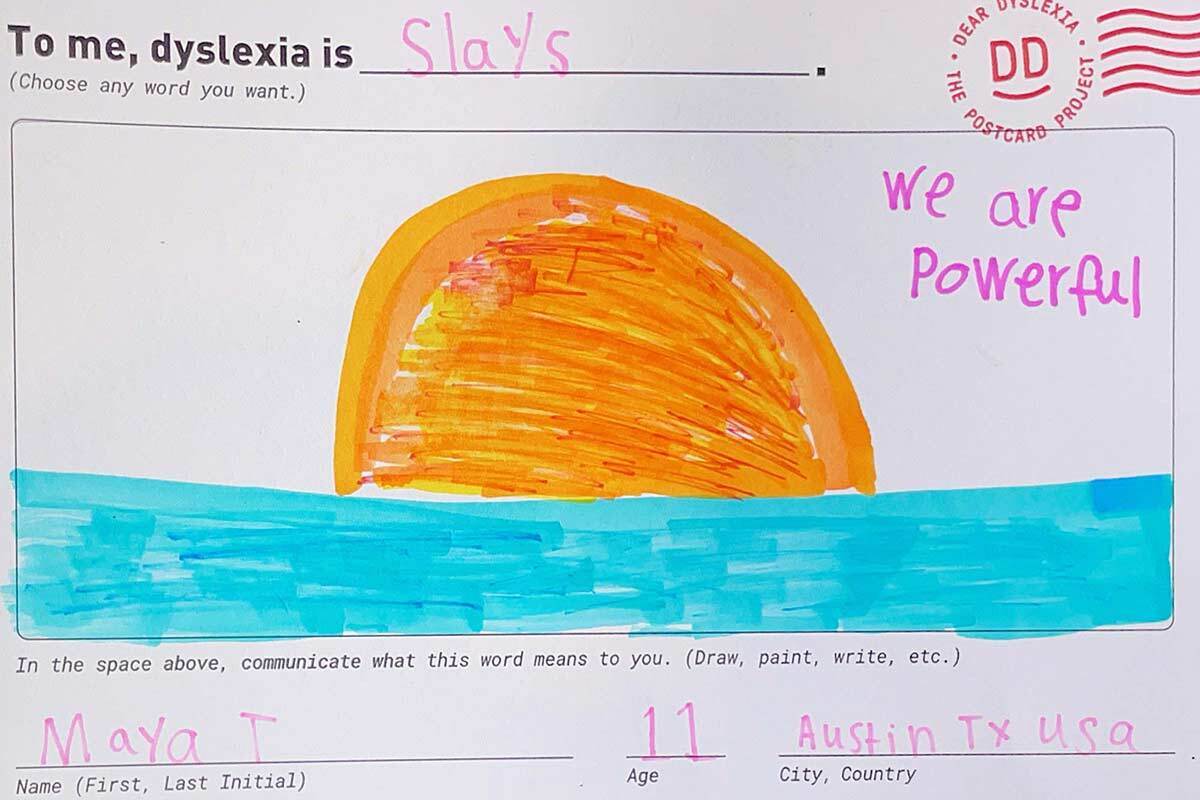 To me, dyslexia is Slays.
(Choose any word you want.)
DEAR DYSLEXIA • THE POSTCARD PROJECT •
DD
We are
Powerful
In the space above, communicate what this word means to you. (Draw, paint, write, etc.)
Maya T 11 Austin Tx Usa
Name (First, Last Initial) Age City, Country